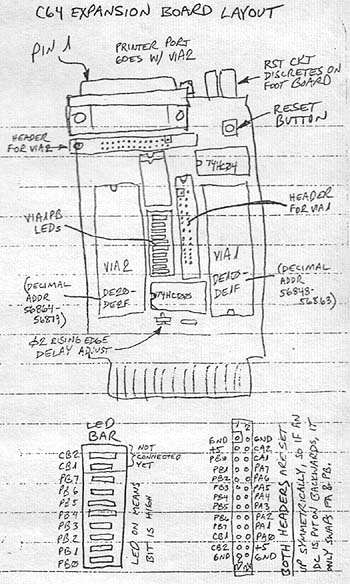 C64 EXPANSION BOARD LAYOUT
PIN 1
PRINTER PORT
GOES W/ VIA2
RST CKT
DISCRETES ON
FOOT BOARD
RESET
BUTTON
HEADER
FOR VIA2
74HC04
HEADER
FOR VIA1
VIA1PB
LEDs
VIA2
VIA1
DE20-
DE2F
DE10-
DE1F
(DECIMAL
ADDR
56864-
56879)
(DECIMAL
ADDR
56848-
56863)
Φ2 RISING EDGE
DELAY ADJUST
LED
BAR
CB2
CB1
NOT
CONNECTED
YET
PB7
PB6
PB5
PB4
PB3
PB2
PB1
PB0
LED ON MEANS
BIT IS HIGH
1 2
GND GND
+5 CA2
PB0 CA1
PB1 PA7
PB2 PA6
PB3 PA5
PB4 PA4
PB5 PA3
PB6 PA2
PB7 PA1
CB1 PA0
CB2 +5
GND GND
BOTH HEADERS ARE SET
UP SYMMETRICALLY, SO IF AN
IDC IS PUT ON BACKWARDS, IT
ONLY SWAPS PA & PB.